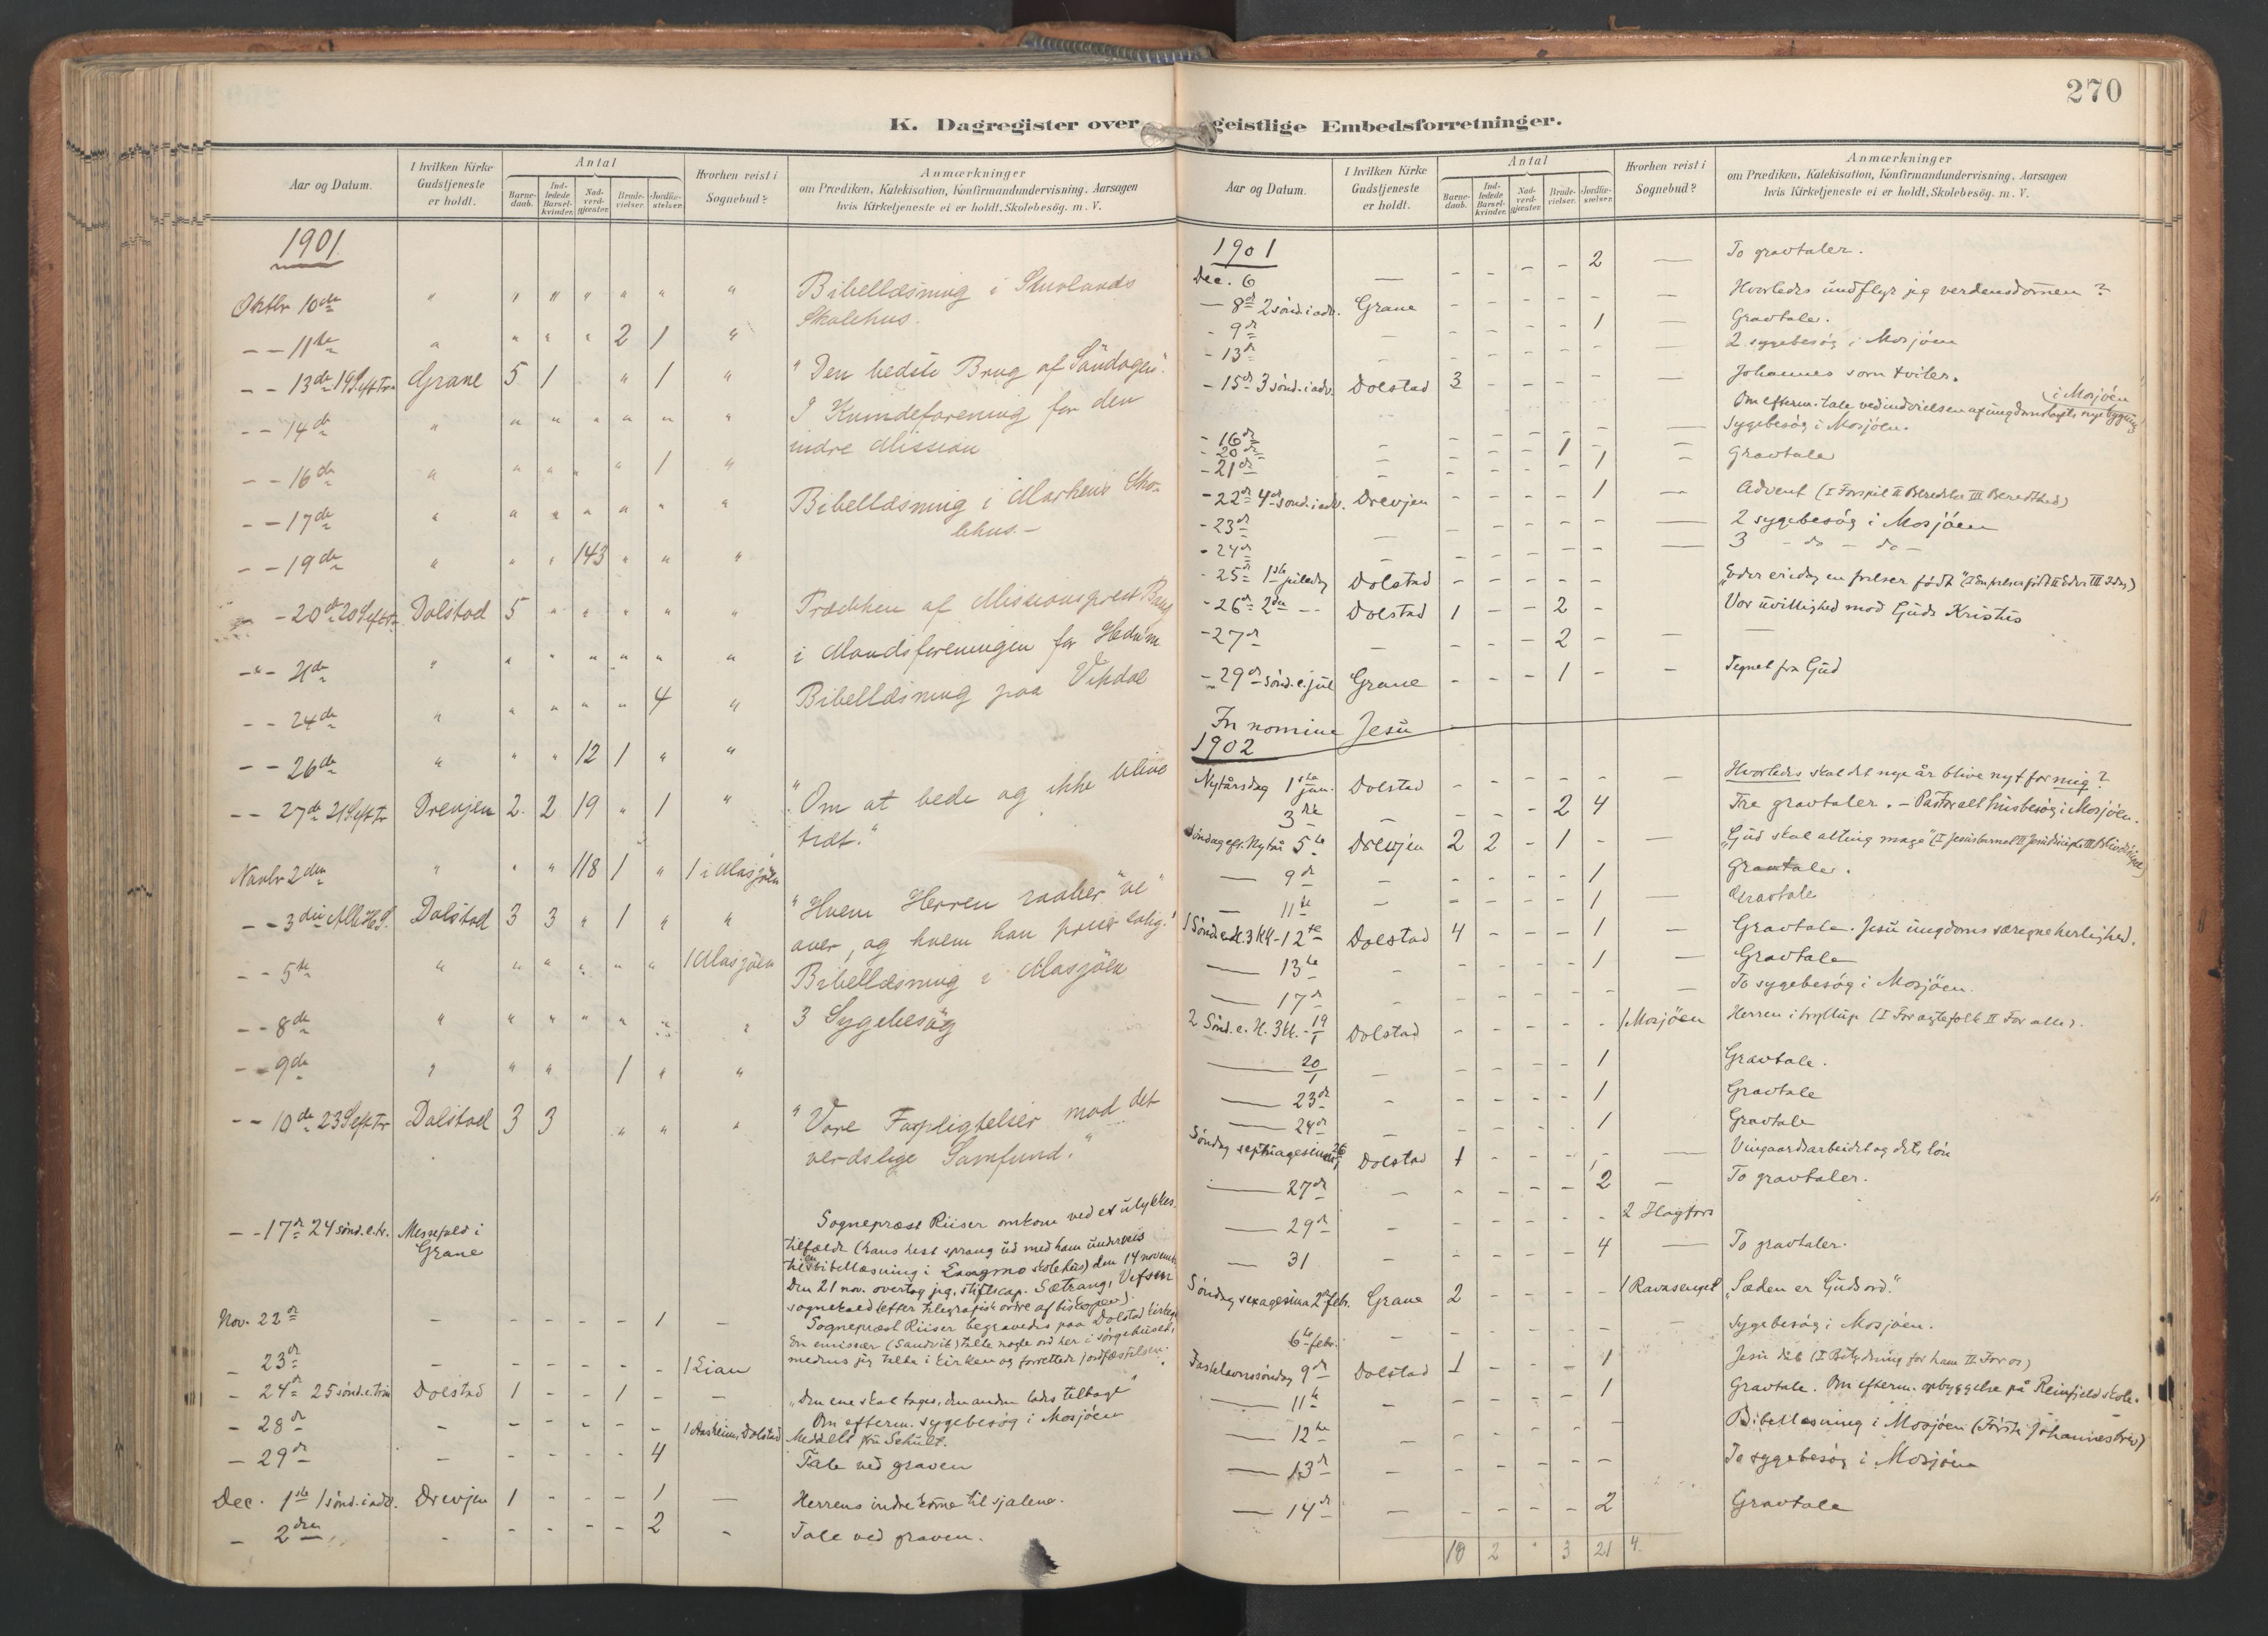 270
K. Dagregister over geistlige Embedsforretninger.
Aar og Datum. I hvilken Kirke Gudstjeneste er holdt. Antal Barnedaab. Indledede Barselkvinder. Nadverdgjæster. Brudevielser. Jordfæstelser. Hvorhen reist i Sognebud? Anmærkninger om Prædiken, Katekisation, Konfirmandundervisning, Aarsagen hvis Kirketjeneste ei er holdt, Skolebesøg. m. V.
1901
Oktbr 10de " " " " " " " Bibellæsning i
Skolehus.
- - 11te " " " " 2 1 "
- - 13de 19 S eft Tr Grane 5 1 " 1 " "Den bedste Brug af Søndagen".
- - 14de " " " " " " " I Kvindeforening for den
indre Mission
- - 16de " " " " " 1 "
- - 17de " " " " " " " Bibellæsning i Markens Sko-
lehus.-
- - 19de " " " 143 " " "
- 20de 20 S eft Tr Dolstad 5 " " " " " Prædiken af Missionsprest
- - 21de " " " " " " " i Mandsforeningen for Hedn.m
- - 24de " " " " " 4 " Bibellæsning paa Vikdal
- - 26de " " " 12 1 " "
- - 27de 21 S eft Tr Drevjen 2 2 19 " 1 " "Om at bede og ikke blive
træt."
Novbr 2den " " " 118 1 " 1 i Mosjøen
- - 3die Alle H.D. Dolstad 3 3 " 1 " " "Hvem Herren raaber "ve"
over, og hvem han priser salig."
- - 5te " " " " " " 1 Mosjøen Bibellæsning i Mosjøen
- - 8de " " " " " " " 3 Sygebesøg
- - 9de " " " 1 " "
- - 10de 23 S eft Tr Dolstad 3 3 " " " "Vore Forpligtelser mod det
verdslige Samfund."
- - 17de 24 sønd. e. tr. Messefald i
Grane
Sognepræst Riiser omkom ved et ulykkes-
tilfælde (hans hest sprang ud med ham underveis
til en bibellæsning i skolehus) den 14 novemb.
Den 21 nov. overtog jeg, stiftscap. Sætrang, Vefsen
sognekald (efter telegrafisk ordre af biskopen).
Nov. 22de - - - - - 1 - Sognepræst Riiser begravedes paa Dolstad kirkeg.
En emissær (Sandvik) talte nogle ord her i sørgehuset,
- 23de - - - - - - 1 Eian medens jeg talte i kirken og forrettede jordfæstelsen.
- 24de 25 sønd. e. trin Dolstad 1 - - 1 - - "Den ene skal tages, den anden lades tilbage"
- 28de - - - - - - 1 Aasheim, Dolstad Om efterm. sygebesøg i Mosjøen
Meddelt fru Schult.
- 29de - - - - - 4 Tale ved graven
Dec. 1ste 1 sønd. i adv. Drevjen 1 - - - 1 - Herrens indre komme til sjælene.
- 2den - - - - - 2 - Tale ved graven.
Aar og Datum. I hvilken Kirke Gudstjeneste er holdt. Antal Barnedaab. Indledede Barselkvinder. Nadverdgjæster. Brudevielser. Jordfæstelser. Hvorhen reist i Sognebud? Anmærkninger om Prædiken, Katekisation, Konfirmandundervisning, Aarsagen hvis Kirketjeneste ei er holdt, Skolebesøg. m. V.
1901
Dec. 6 - - - - - 2 - To gravtaler.
- 8de 2 sønd. i adv. Grane - - - - - - Hvorledes undflyr jeg verdensdommen?
- 9de - - - - - 1 - Gravtale.
- 13de - - - - - - - 2 sygebesøg i Mosjøen
- 15de 3 sønd. i adv. Dolstad 3 - - - - - Johannes som tviler.
Om efterm. tale ved indvielsen af ungdomslagets nye bygning i Mosjøen
- 16de - - - - - - - Sygebesøg i Mosjøen.
- 20de - - - - 1 - -
- 21de - - - - - 1 - Gravtale
- 22de 4de sønd. i adv. Drevjen - - - - 1 - Advent (I Forspil II Beredelse III Beredthed)
- 23de - - - - - - - 2 sygebesøg i Mosjøen
- 24de - - - - - - - 3 - do - do -
- 25de 1ste juledag Dolstad - - - - - "Eder er idag en frelser født" (I En frelser født II Eder III Idag)
- 26de 2den - - Dolstad 1 - - 2 - Vor uvillighed mod Guds Kristus
- 27de - - - - 2 - - -
- 29de sønd. e. jul Grane - - - 1 - - Tegnet fra Gud
In nomine Jesu
1902
Nytårsdag 1ste jan. Dolstad - - - - - - Hvorledes skal det nye år blive nyt for mig?
3die - - - - 2 4 Tre gravtaler. - Pastoralt husbesøg i Mosjøen.
Søndag eft. Nytår 5te Drevjen 2 2 - 1 - - "Gud skal alting mage" (I Jesusbarnet II Jesu disciple III
- 9de - - - - - 1 Gravtale.
- 11te - - - - - 1 - Gravtale
1 Sønd. e. H. 3 K. - 12te Dolstad 4 - - - 1 - Gravtale. Jesu ungdoms særegne herlighed.
- 13de - - - - - 1 - Gravtale
- 17de - - - - - - - To sygebesøg i Mosjøen.
2 Sønd. e. H. 3 K. - 19/1 Dolstad - - - - - 1 Mosjøen Herren i bryllup (I For ægtefolk II For alle).
- 20/1 - - - - - 1 Gravtale.
- 23de - - - - - 1 Gravtale
- 24de - - - - - 1 Gravtale
Søndag septuagesima 26/1 Dolstad 1 - - - - - Vingaardsarbeidet og dets løn
- 27de - - - - - 2 - To gravtaler.
- 29de - - - - - - 2 Hagfors
- 31 - - - - - 4 - To gravtaler.
Søndag sexagesima 2den febr. Grane 2 - - - - 1 "Sæden er Guds ord."
6te febr. - - - - - - - Sygebesøg i Mosjøen.
Fastelavnssøndag 9de Dolstad 1 - - - 1 Jesu dåb (I Betydning for ham II For os)
- 11te - - - - - 1 Gravtale. Om efterm. opbyggelse på Reinfjeld skole.
- 12te - - - - - - - Bibellæsning i Mosjøen (Første Johannes brev)
- 13de - - - - - - To sygebesøg i Mosjøen
- 14de - - - - - 2 Gravtale
10 2 " 3 21 4.